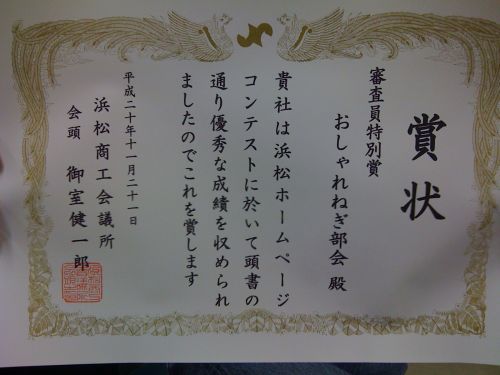 賞状
審査員特別賞
おしゃれねぎ部会 殿
貴社は浜松ホームページ
コンテストに於いて頭書の
通り優秀な成績を収められ
ましたのでこれを賞します
平成二十年十一月二十一日
浜松商工会議所
会頭 御室健一郎